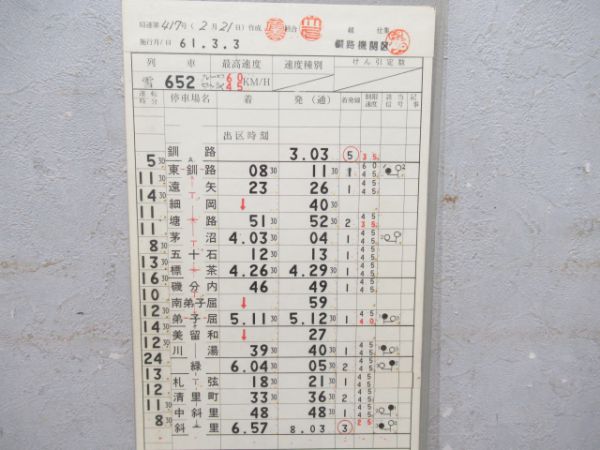 局達第417号(2月21日)作成 照合 総 仕業
施行月/日 61.3.3 釧路機関区
列車 最高速度 速度種別 けん引定数
雪 652 60 45 KM/H
運転時分 停車場名 着 発(通) 着発線 制限速度 該当信号 記事
出区時刻
釧路 3.03 5 35
5 30 東釧路 08 30 11 30 1 60 45
11 遠矢 23 26 1 45 45
14 細岡 ↓ 40 30
11 塘路 51 52 30 2 45 35
11 茅沼 4.03 30 04 1 45 45
8 30 五十石 12 30 13 1 45 45
13 標茶 4.26 30 4.29 30 1 45 45
16 磯分内 46 49 1 45 45
10 南弟子屈 ↓ 59
12 弟子屈 5.11 30 5.12 30 1 45 40
15 美留和 ↓ 27
12 川湯 39 30 40 30 1 45 45
24 緑 6.04 30 05 30 2 45 45
13 札弦 18 30 21 30 1 45 45
12 清里町 33 30 36 30 2 45 45
11 中斜里 48 48 30 1 45 45
8 30 斜里 6.57 8.03 3 25 45